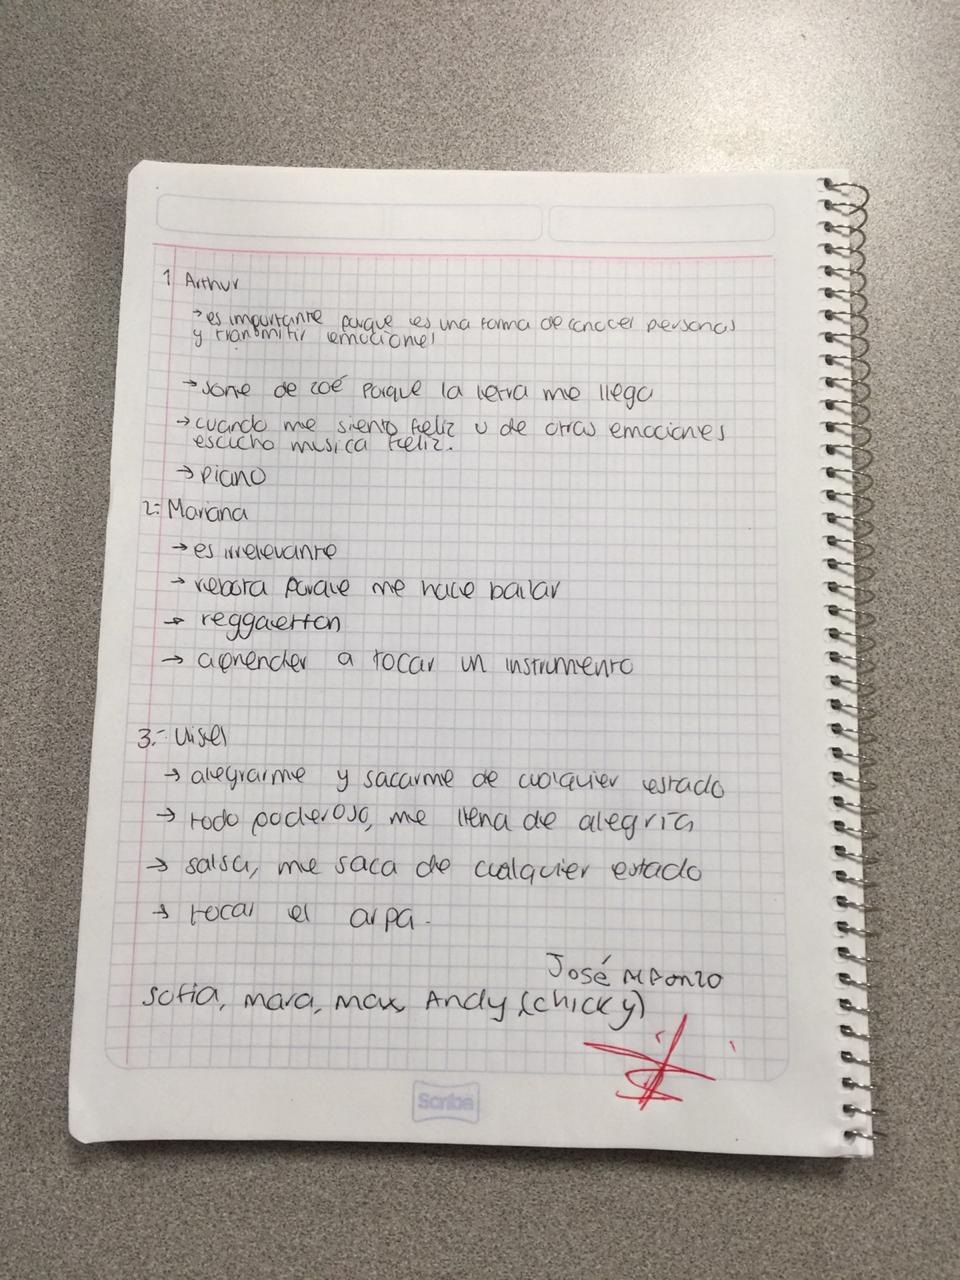 1 Arthur
→ es importante porque es una forma de conocer personas
y transmitir emociones
→ sorie de zoé porque la letra me llega
→ cuando me siento feliz u de otras emociones
escucho musica feliz.
→ piano
2: Mariana
→ es irrelevante
→ rebota porque me hace bailar
→ reggaetton
→ aprender a tocar un instrumento
3.-
→ alegrarme y sacarme de cualquier estado
→ todo poderoso, me llena de alegría
→ salsa, me saca de cualquier estado
→ tocar el arpa.
José
sofia, mara, max, Andy (chicky)
Scribe